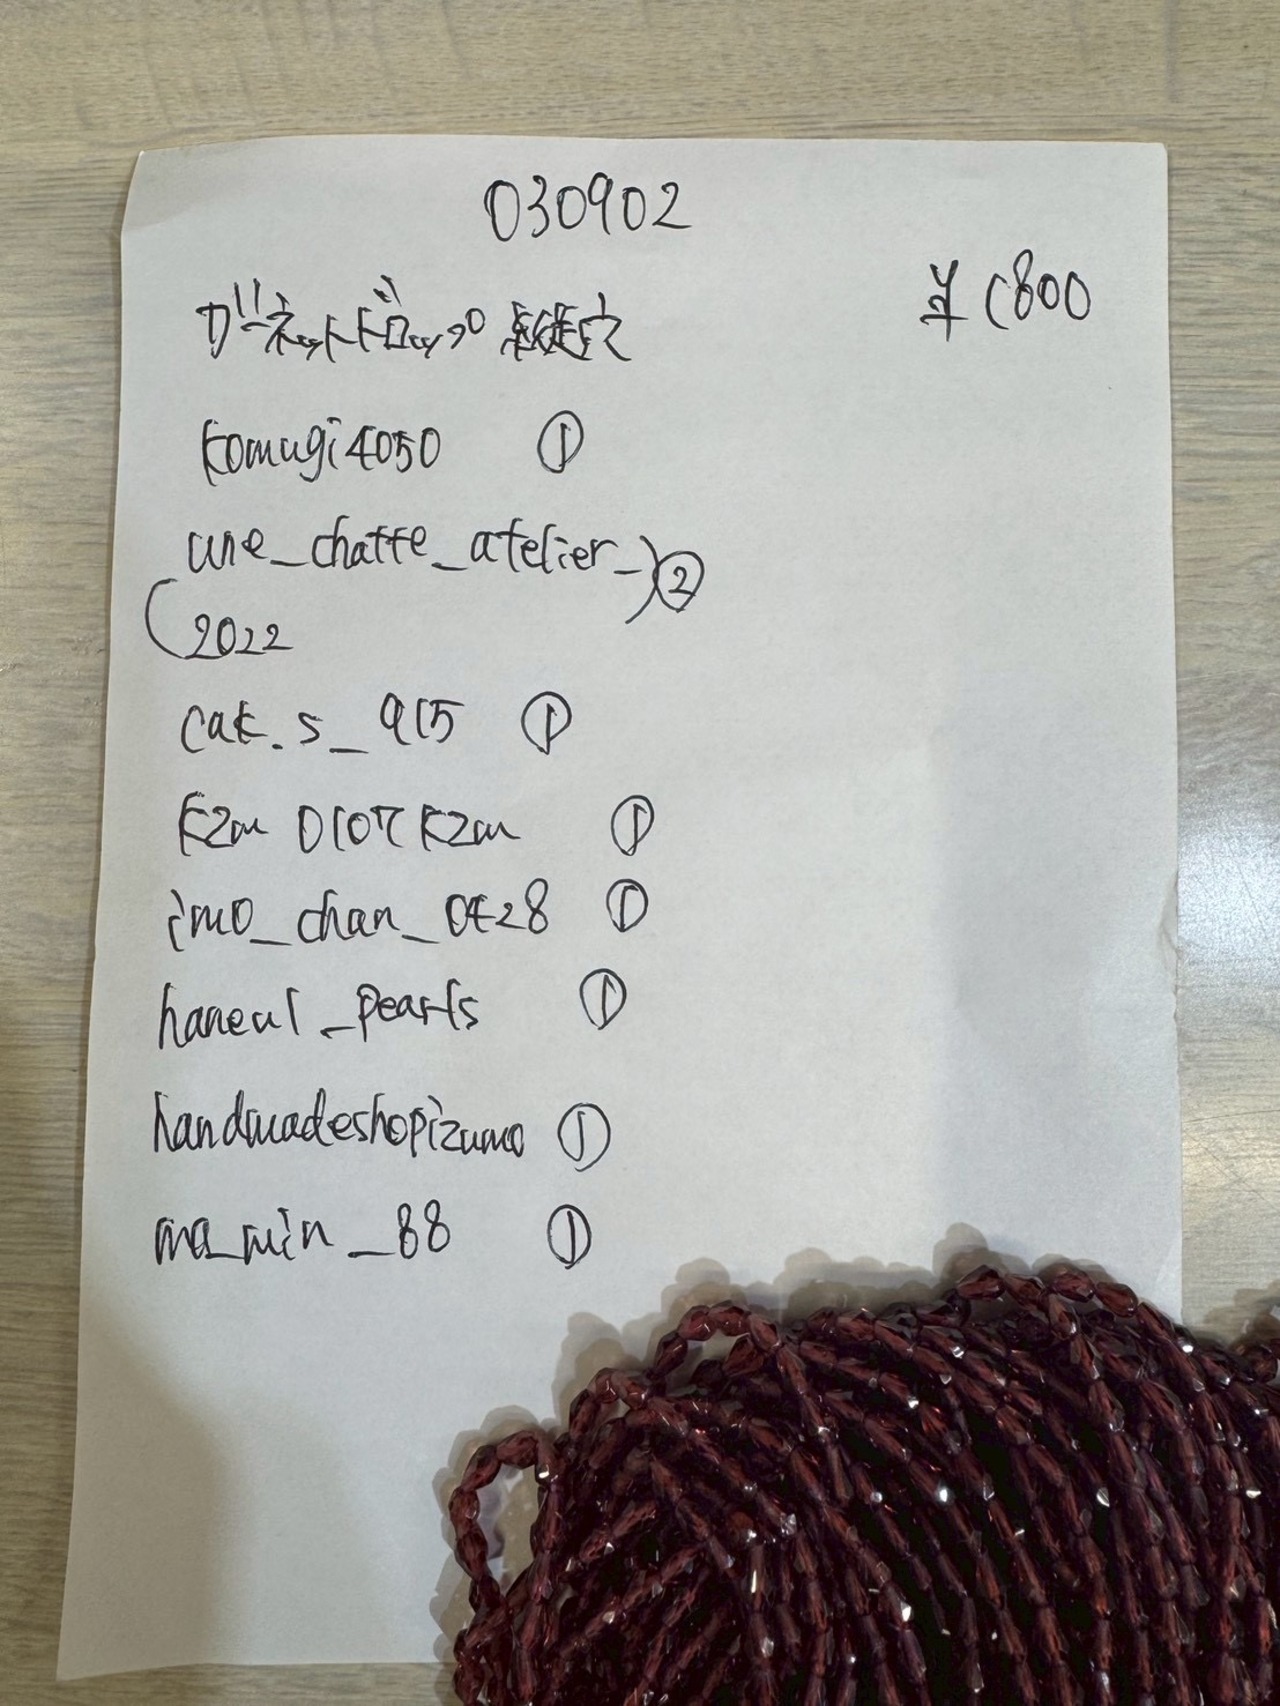 030902
ガーネットドロップ 縦穴
¥1800
komugi4050 ①
une_chatte_atelier_
2022 ②
cak.s_915 ①
kzm0107kzm ①
imo_chan_0428 ①
haneul_pearls ①
handmadeshopizumo ①
ma_min_88 ①